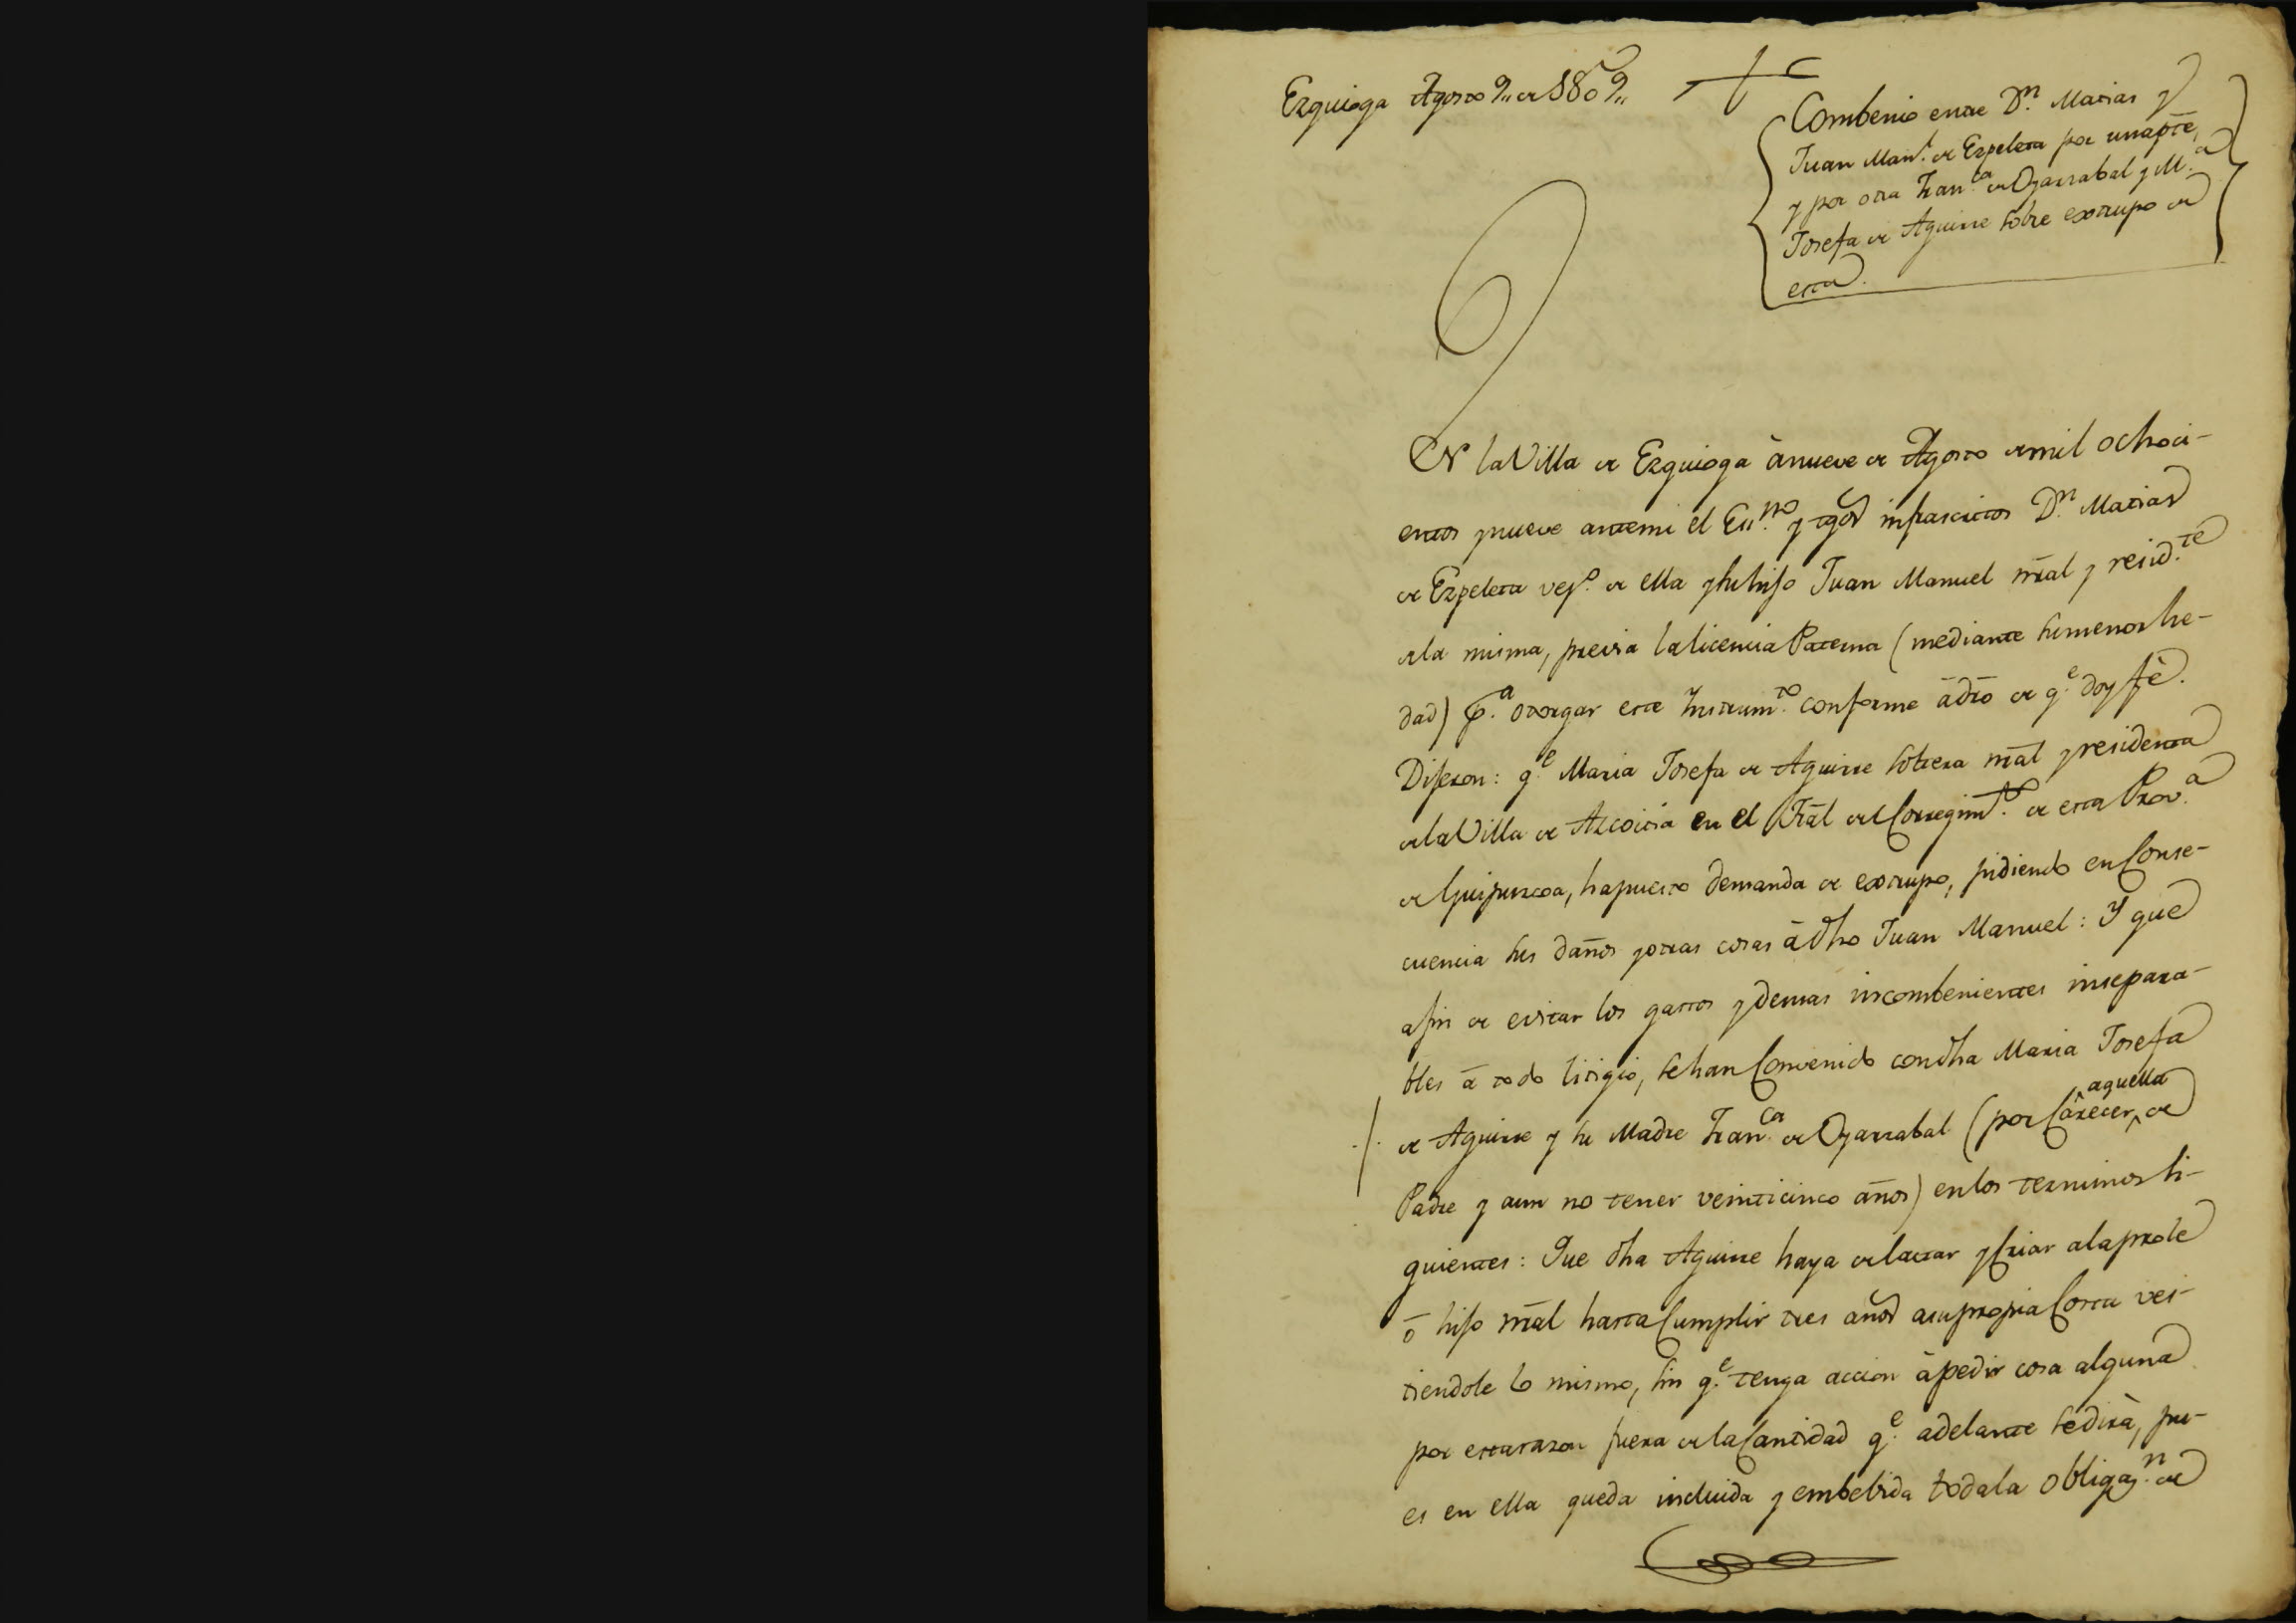 Ezquioga Agosto 9,, de 1809,,
Combenio entre D.n Matias y
Juan Man.l de Ezpeleta por una pte,
y por otra Fran.ca de Oyarzabal y M.a
Josefa de Aguirre sobre extrupo de
esta.
EN la Villa de Ezquioga à nueve de Agosto de mil ochoci-
entos y nueve ante mi el Ess.no y tgos infrascritos D.n Matias
de Ezpeleta vez.o de ella y su hijo Juan Manuel nral y resid.te
de la misma, previa la licencia Paterna (mediante su menor he-
dad) p.a otorgar este Instrum.to conforme à dro de q.e doy fè.
Dijeron: q.e Maria Josefa de Aguirre soltera nral y residenta
de la Villa de Azcoitia en el Tral del Corregim.to de esta Prov.a
de Guipuzcoa, ha puesto demanda de extrupo, pidiendo en Conse-
cuencia sus daños y otras cosas à dho Juan Manuel: Y que
a fin de evitar los gastos y demas incombenientes insepara-
bles à todo litigio, se han Convenido con dha Maria Josefa
de Aguirre y su Madre Fran.ca de Oyarzabal (por Carecer aquella de
Padre y aun no tener veinticinco años) en los terminos si-
guientes: Que dha Aguirre haya de lactar y Criar a la prole
ò hijo nral hasta Cumplir tres años a su propia Costa ves-
tiendole lo mismo, sin q.e tenga accion à pedir cosa alguna
por esta razon fuera de la Cantidad q.e adelante se dirà, pu-
es en ella queda incluida y embebida toda la obligaz.n de